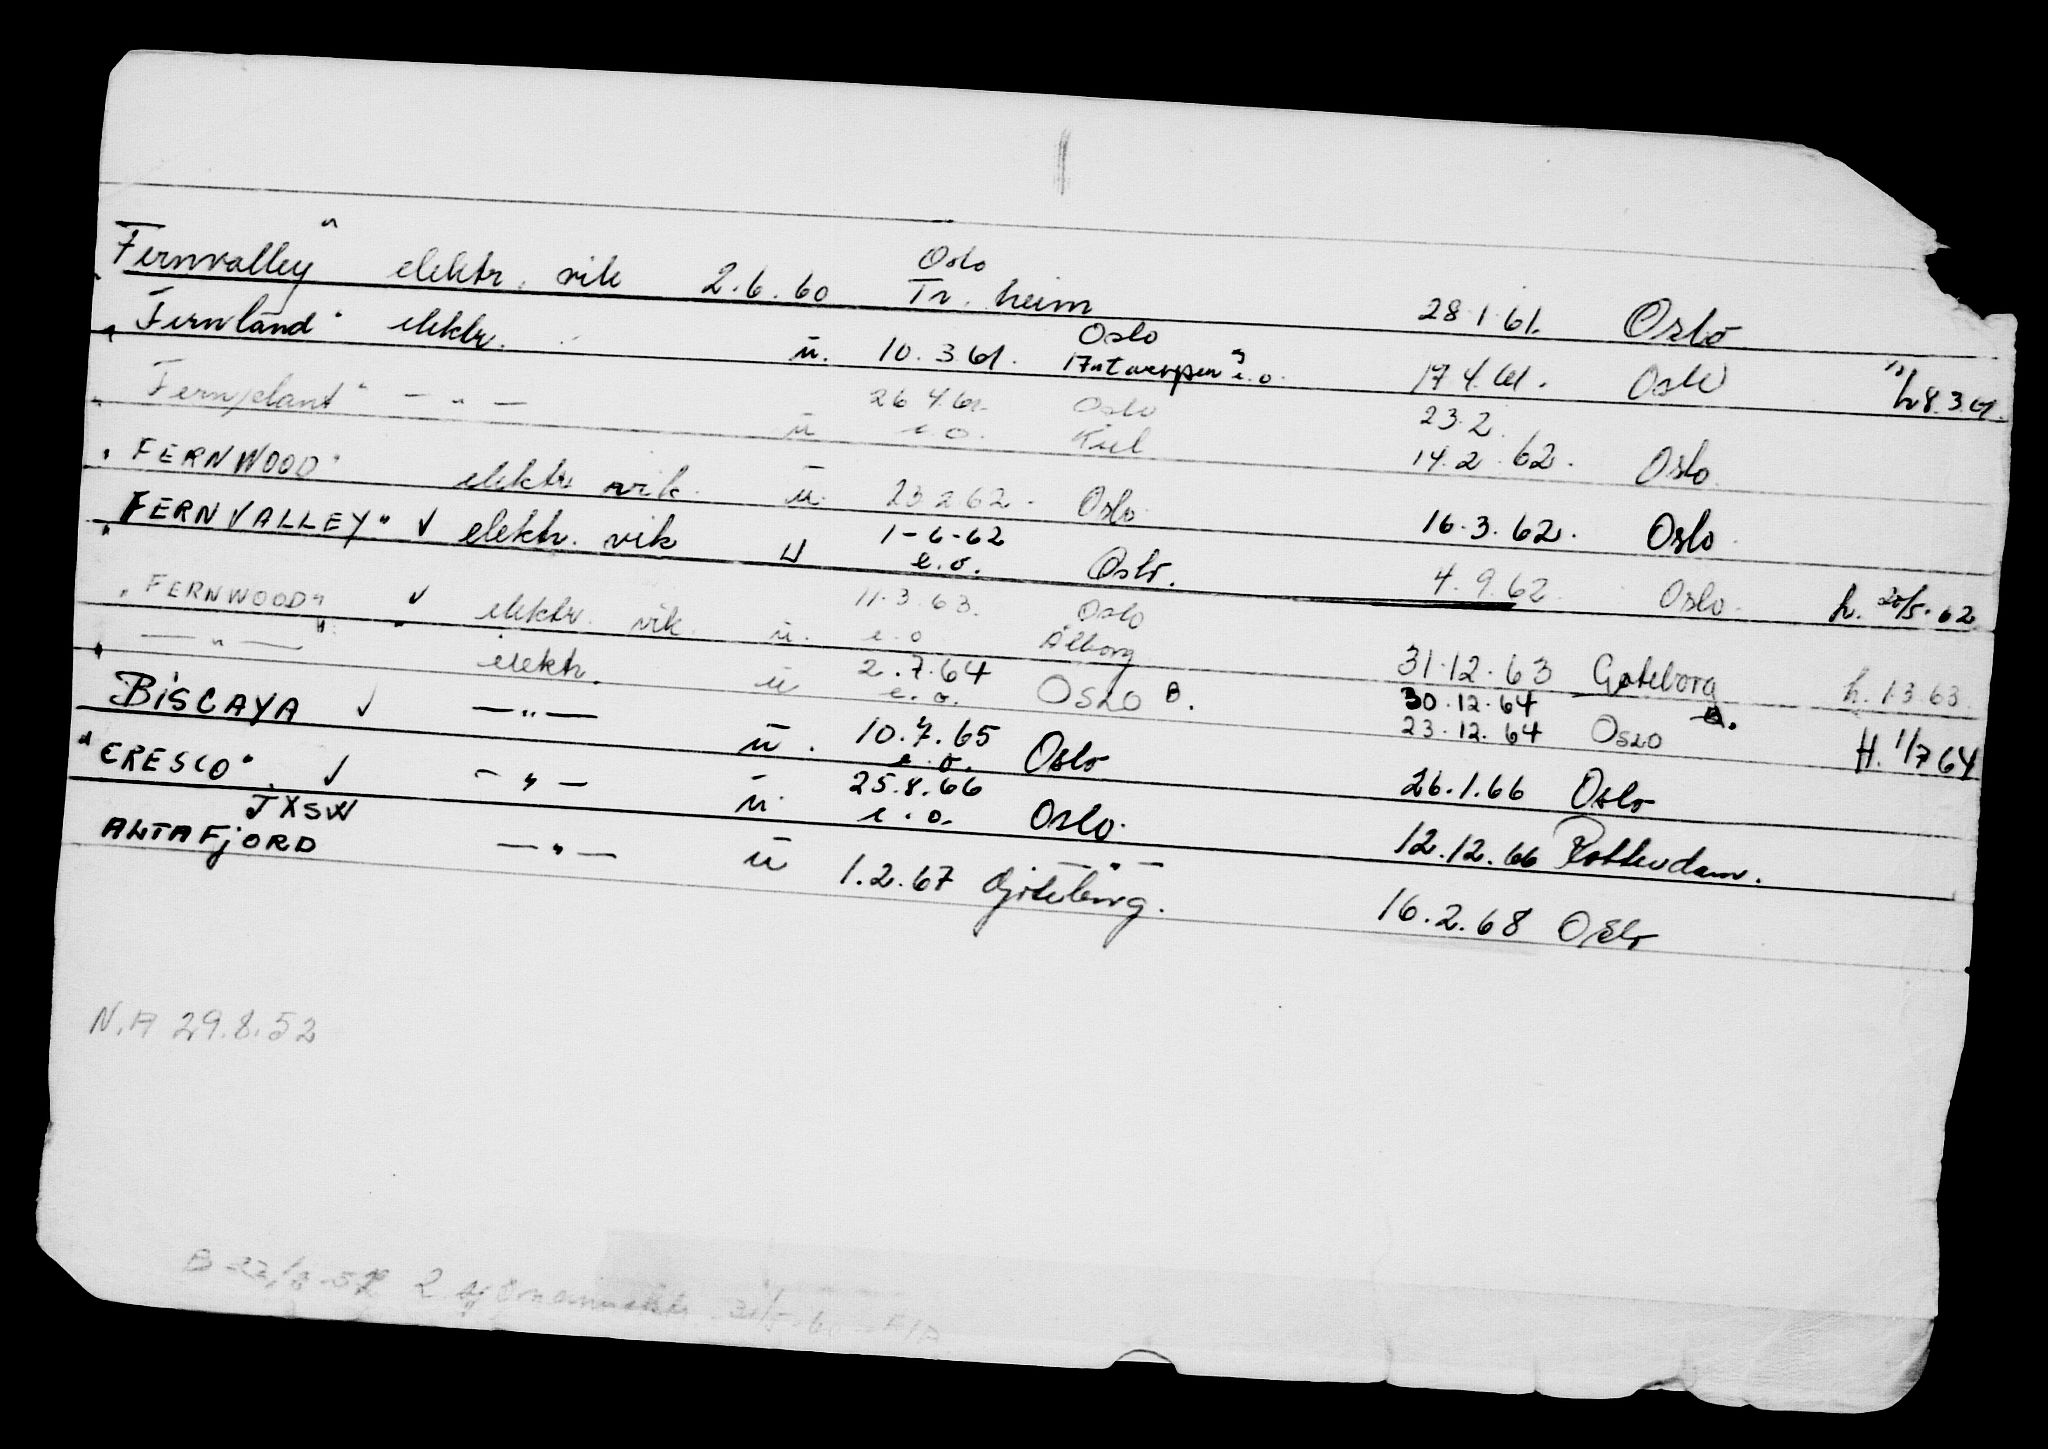 Fernvalley" elektr. vik 2.6.60 Oslo Tr. heim 28.1.61. Oslo
"Fernland" elektr. u. 10.3.61. Oslo Antwerpen e.o. 17.4.61. Oslo h 8.3.61.
"Fernplant" — " — u 26.4.61. e.o. Oslo Kiel 23.2. 14.2.62. Oslo
"FERNWOOD" elektr vik. u. 23.2.62. Oslo 16.3.62. Oslo
"FERNVALLEY" ✓ elektr. vik u 1-6-62 e.o. Oslo. 4.9.62. Oslo. h. 28/5.62
"FERNWOOD" ✓ elektr. vik. u. 11.3.63. e.o Oslo Ålborg 31.12.63 Gøteborg h. 1.3.63.
— " — elektr. u 2.7.64 e.o. OSLO B. 30.12.64 23.12.64 OSLO H. 1/7 64
BISCAYA ✓ — " — u. 10.7.65 e.o. Oslo 26.1.66 Oslo
"CRESCO" ✓ — " — u. 25.8.66 e.o. Oslo. 12.12.66 Rotterdam.
JXSW
ALTAFJORD — " — u 1.2.67 Gøteborg. — " — 16.2.68 Oslo
N.A 29.8.52